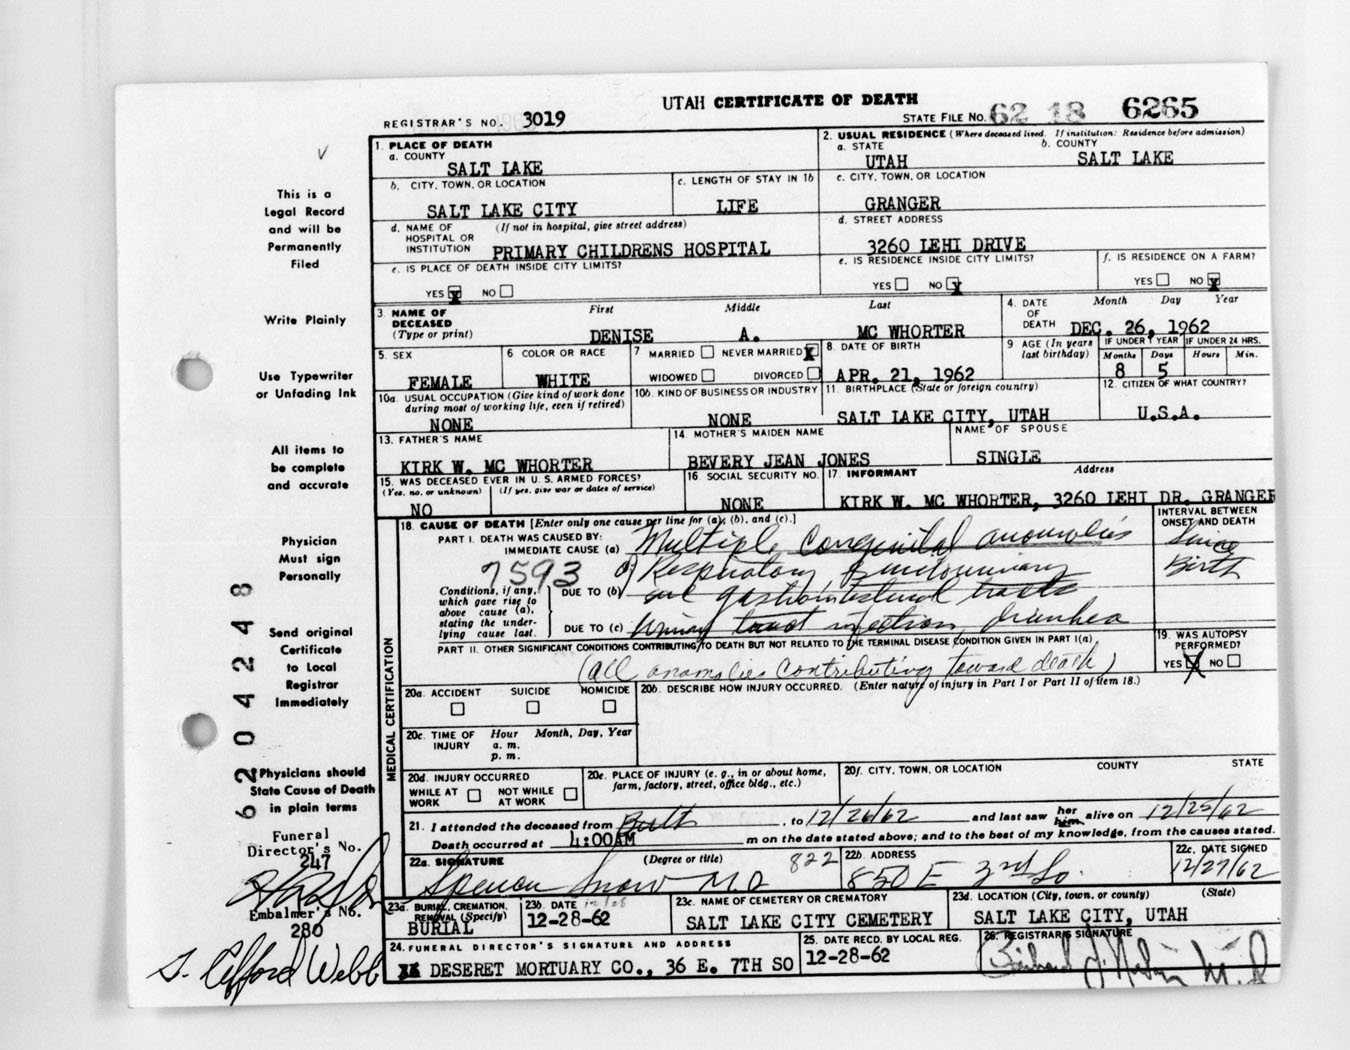 UTAH CERTIFICATE OF DEATH
REGISTRAR'S NO. 3019
STATE FILE NO. 62 18 6265
1. PLACE OF DEATH
a. COUNTY
SALT LAKE
2. USUAL RESIDENCE (Where deceased lived. If institution: Residence before admission)
a. STATE b. COUNTY
UTAH SALT LAKE
b. CITY, TOWN, OR LOCATION
SALT LAKE CITY
c. LENGTH OF STAY IN 1b
LIFE
c. CITY, TOWN, OR LOCATION
GRANGER
d. NAME OF HOSPITAL OR INSTITUTION (If not in hospital, give street address)
PRIMARY CHILDRENS HOSPITAL
d. STREET ADDRESS
3260 LEHI DRIVE
e. IS PLACE OF DEATH INSIDE CITY LIMITS?
YES X NO
e. IS RESIDENCE INSIDE CITY LIMITS?
YES NO X
f. IS RESIDENCE ON A FARM?
YES NO X
3. NAME OF DECEASED (Type or print)
First Middle Last
DENISE A. MC WHORTER
4. DATE OF DEATH Month Day Year
DEC. 26, 1962
5. SEX
FEMALE
6 COLOR OR RACE
WHITE
7 MARRIED NEVER MARRIED X
WIDOWED DIVORCED
8. DATE OF BIRTH
APR. 21, 1962
9 AGE (In years last birthday)
IF UNDER 1 YEAR IF UNDER 24 HRS.
Months Days Hours Min.
8 5
10a. USUAL OCCUPATION (Give kind of work done during most of working life, even if retired)
NONE
10b. KIND OF BUSINESS OR INDUSTRY
NONE
11. BIRTHPLACE (State or foreign country)
SALT LAKE CITY, UTAH
12. CITIZEN OF WHAT COUNTRY?
U.S.A.
13. FATHER'S NAME
KIRK W. MC WHORTER
14. MOTHER'S MAIDEN NAME
BEVERY JEAN JONES
NAME OF SPOUSE
SINGLE
15. WAS DECEASED EVER IN U.S. ARMED FORCES?
(Yes, no, or unknown) (If yes, give war or dates of service)
NO
16. SOCIAL SECURITY NO.
NONE
17. INFORMANT Address
KIRK W. MC WHORTER, 3260 LEHI DR. GRANGER
MEDICAL CERTIFICATION
18. CAUSE OF DEATH [Enter only one cause per line for (a), (b), and (c).]
INTERVAL BETWEEN ONSET AND DEATH
PART I. DEATH WAS CAUSED BY:
IMMEDIATE CAUSE (a) Multiple Congenital anomalies
Since Birth
7593
Respiratory Genitourinary
Conditions, if any, which gave rise to above cause (a), stating the underlying cause last.
DUE TO (b) and gastrointestinal tracts
DUE TO (c) Urinary tract infection, diarrhea
PART II. OTHER SIGNIFICANT CONDITIONS CONTRIBUTING TO DEATH BUT NOT RELATED TO THE TERMINAL DISEASE CONDITION GIVEN IN PART I(a)
(all anomalies contributing toward death)
19. WAS AUTOPSY PERFORMED?
YES X NO
20a. ACCIDENT SUICIDE HOMICIDE
20b. DESCRIBE HOW INJURY OCCURRED. (Enter nature of injury in Part I or Part II of item 18.)
20c. TIME OF INJURY Hour Month, Day, Year
a. m.
p. m.
20d. INJURY OCCURRED
WHILE AT WORK NOT WHILE AT WORK
20e. PLACE OF INJURY (e. g., in or about home, farm, factory, street, office bldg., etc.)
20f. CITY, TOWN, OR LOCATION COUNTY STATE
21. I attended the deceased from Birth, to 12/26/62 and last saw her him alive on 12/25/62
Death occurred at 4:00AM m on the date stated above; and to the best of my knowledge, from the causes stated.
22a. SIGNATURE (Degree or title)
Spencer Snow M D 822
22b. ADDRESS
850 E 3rd So.
22c. DATE SIGNED
12/27/62
23a. BURIAL, CREMATION, REMOVAL (Specify)
BURIAL
23b. DATE
12-28-62
23c. NAME OF CEMETERY OR CREMATORY
SALT LAKE CITY CEMETERY
23d. LOCATION (City, town, or county) (State)
SALT LAKE CITY, UTAH
24. FUNERAL DIRECTOR'S SIGNATURE AND ADDRESS
DESERET MORTUARY CO., 36 E. 7TH SO
25. DATE RECD. BY LOCAL REG.
12-28-62
26. REGISTRAR'S SIGNATURE
This is a
Legal Record
and will be
Permanently
Filed
Write Plainly
Use Typewriter
or Unfading Ink
All items to
be complete
and accurate
Physician
Must sign
Personally
Send original
Certificate
to Local
Registrar
Immediately
Physicians should
State Cause of Death
in plain terms
62 04 2248
Funeral
Director's No.
247
Embalmer's No.
280
S. Clifford Webb